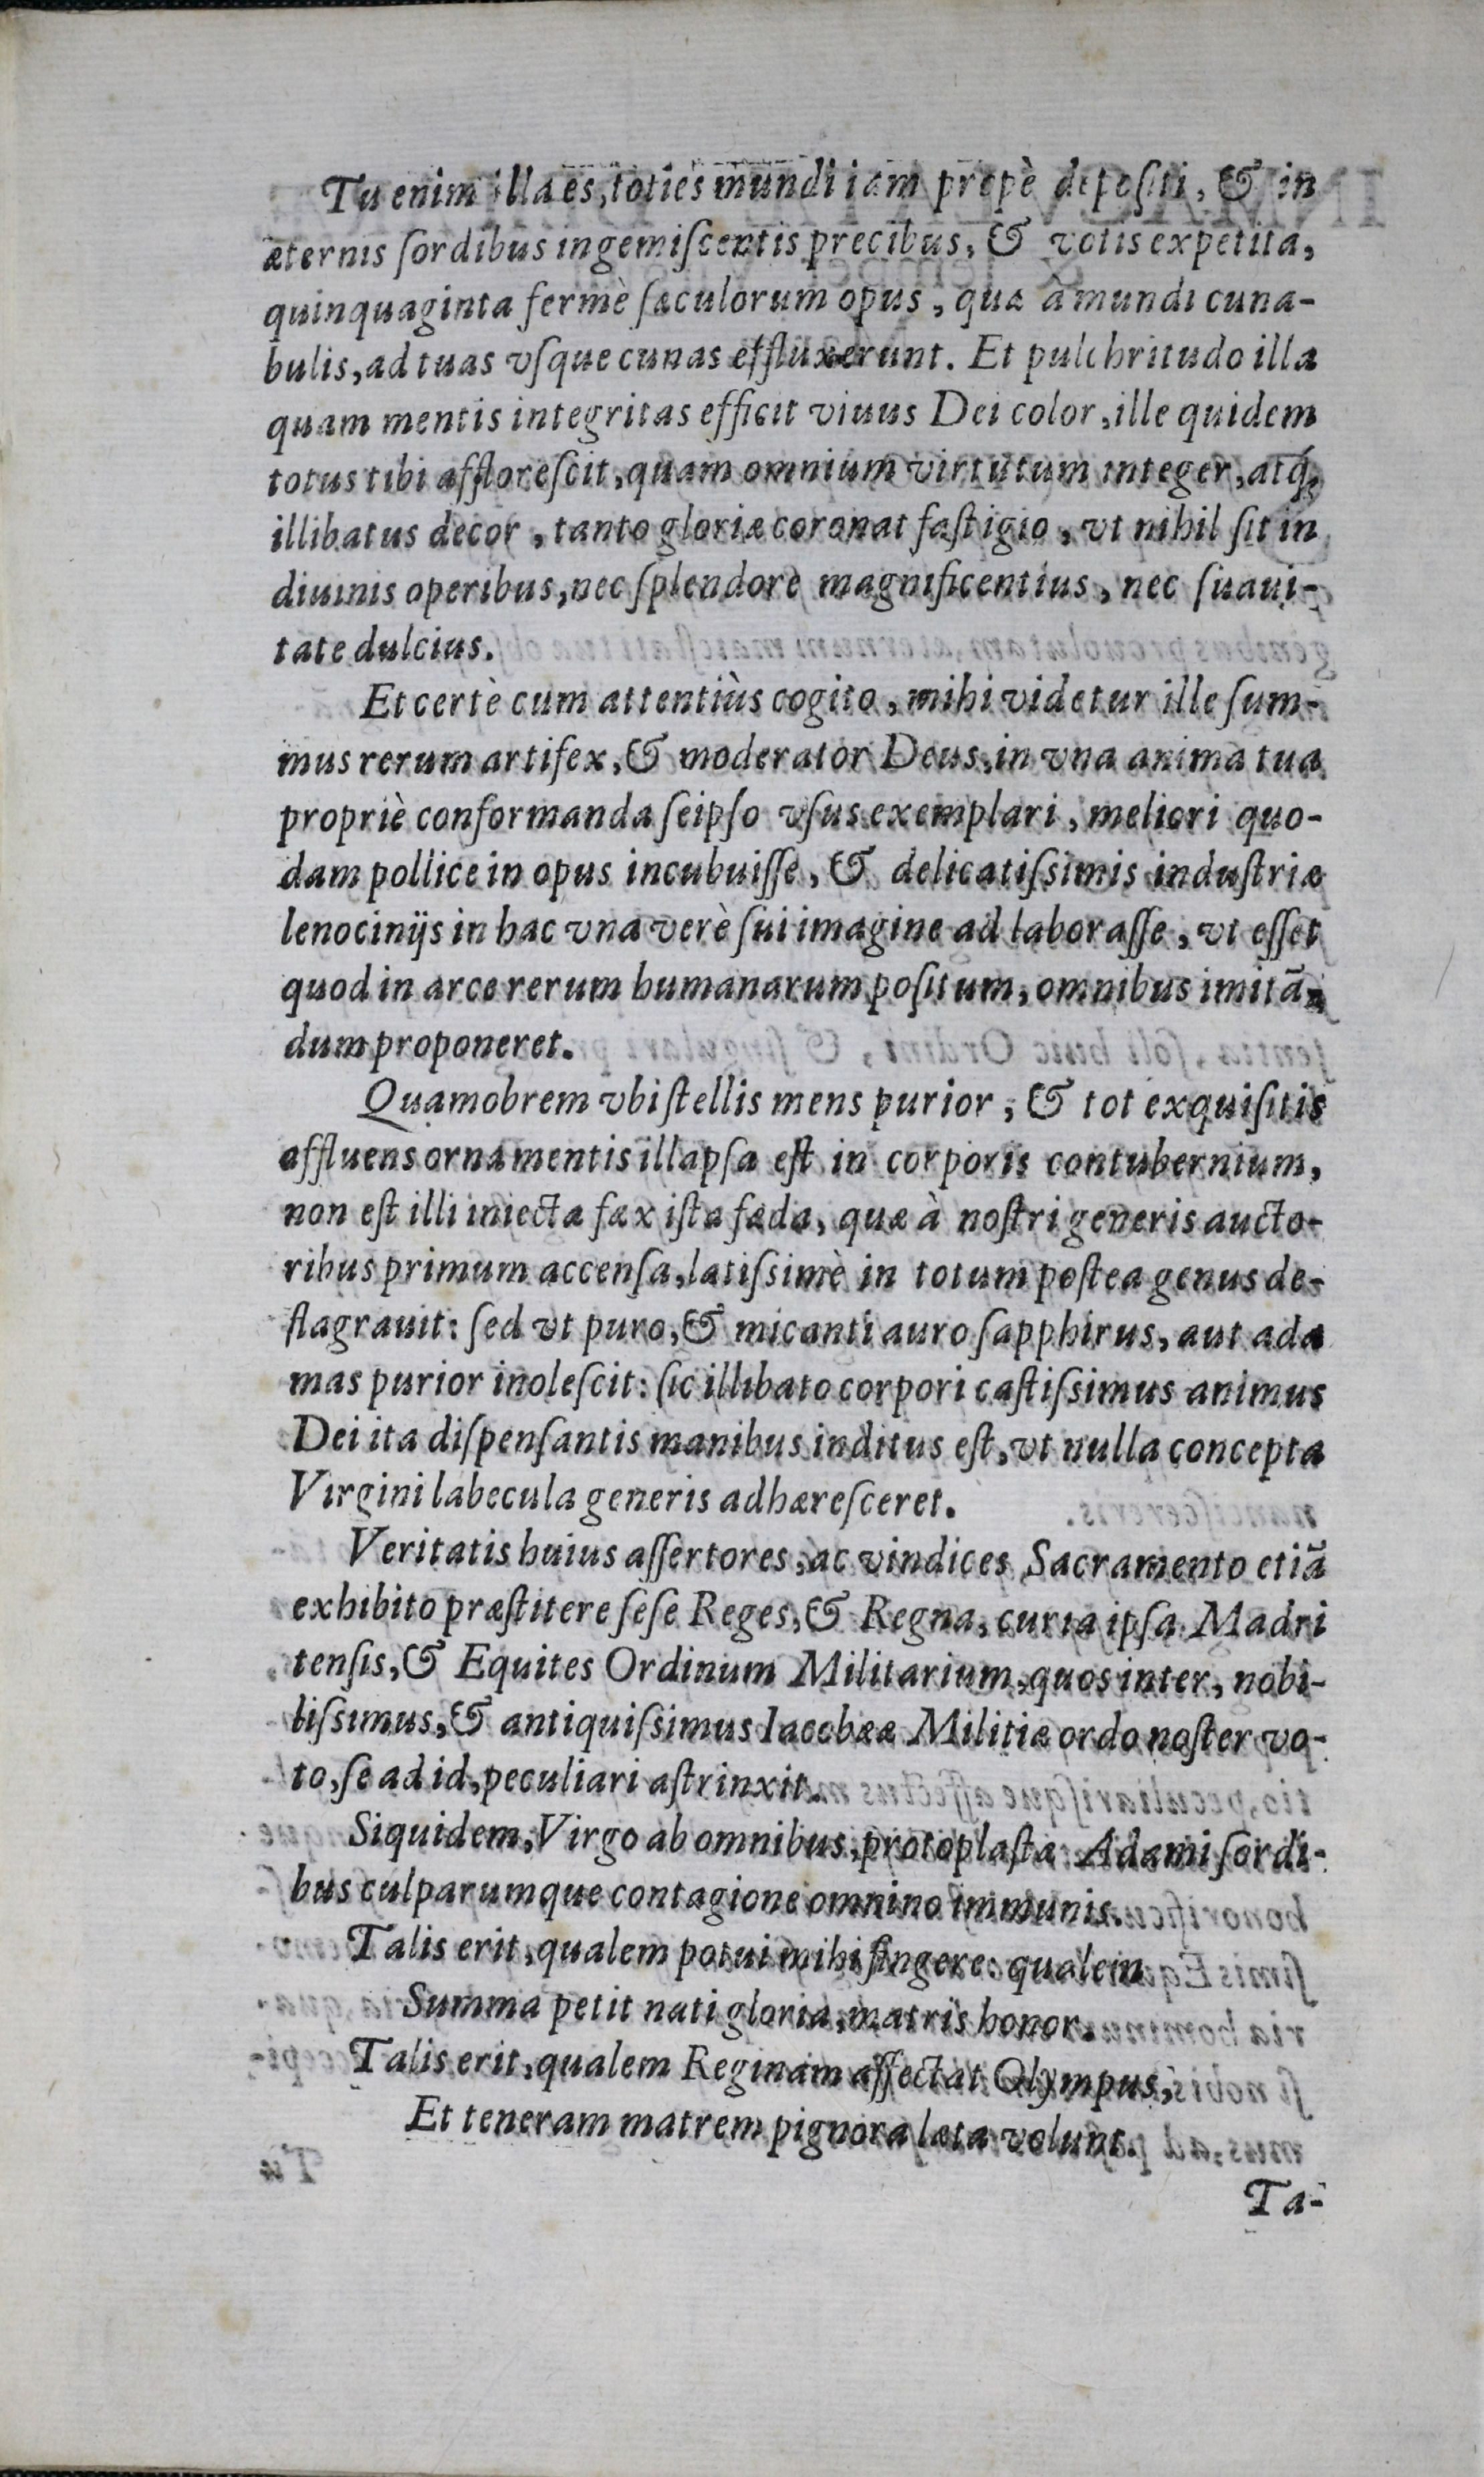 Tu enim illa es, toties mundi iam propè depositi, & in
æternis ſordibus ingemiſcentis precibus, & votis expetita,
quinquaginta fermè ſæculorum opus, quæ à mundi cuna-
bulis, ad tuas vſque cunas effluxerunt. Et pulchritudo illa
quam mentis integritas efficit viuus Dei color, ille quidem
totus tibi affloreſcit, quàm omnium virtutum integer, atq́;
illibatus decor, tanto gloriæ coronat faſtigio, vt nihil ſit in
diuinis operibus, nec ſplendore magnificentius, nec ſuaui-
tate dulcius.
Et certè cum attentiùs cogito, mihi videtur ille ſum-
mus rerum artifex, & moderator Deus, in vna anima tua
propriè conformanda ſeipſo vſus exemplari, meliori quo-
dam pollice in opus incubuiſſe, & delicatiſsimis induſtriæ
lenocinijs in hac vna verè ſui imagine ad laboraſſe, vt eſſet
quod in arce rerum humanarum poſitum, omnibus imitã-
dum proponeret.
Quamobrem vbi ſtellis mens purior, & tot exquiſitis
affluens ornamentis illapſa eſt in corporis contubernium,
non eſt illi iniecta fax iſta fæda, quæ à noſtri generis aucto-
ribus primum accenſa, latiſsimè in totum poſtea genus de-
flagrauit: ſed vt puro, & micanti auro ſapphirus, aut ada
mas purior inoleſcit: ſic illibato corpori caſtiſsimus animus
Dei ita diſpenſantis manibus inditus eſt, vt nulla concepta
Virgini labecula generis adhæreſceret.
Veritatis huius aſſertores, ac vindices Sacramento etiã
exhibito præſtitere ſeſe Reges, & Regna, curia ipſa Madri
tenſis, & Equites Ordinum Militarium, quos inter, nobi-
liſsimus, & antiquiſsimus Iacobææ Militiæ ordo noſter vo-
to, ſe ad id, peculiari aſtrinxit.
Siquidem, Virgo ab omnibus, protoplaſta Adami ſordi-
bus culparumque contagione omnino immunis.
Talis erit, qualem potui mihi fingere: qualem
Summa petit nati gloria, matris honor.
Talis erit, qualem Reginam affectat Olympus,
Et teneram matrem pignora læta volunt.
Ta-